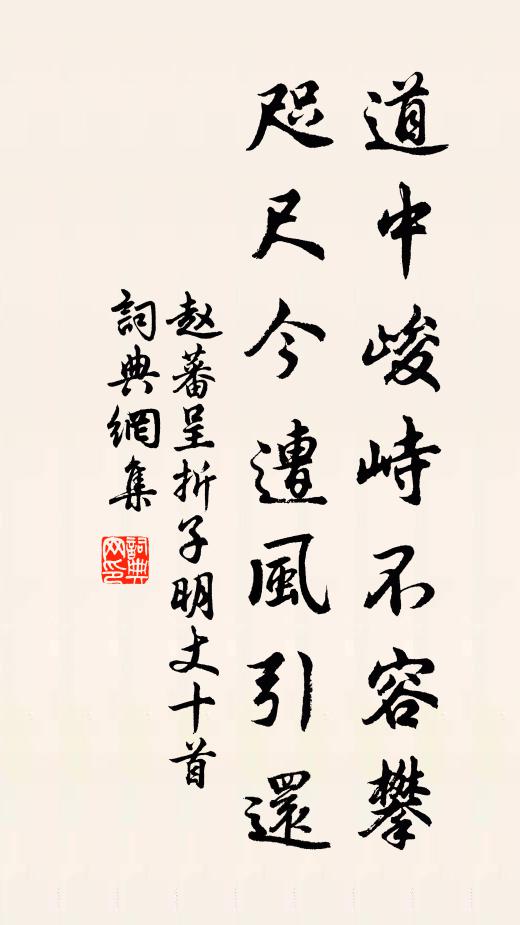 道中峻峙不容攀
咫尺今遭風引還
赵蕃呈折子明丈十首
詞典網集
詞典網印